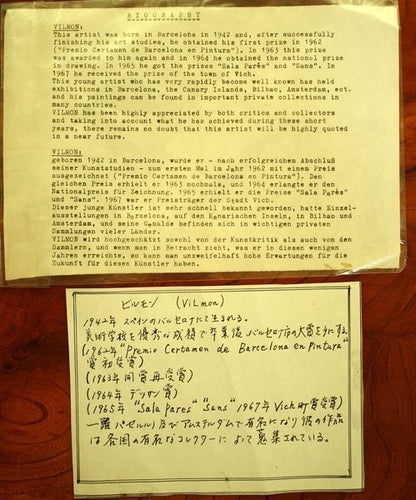 BIOGRAPHY
VILMON:
This artist was born in Barcelona in 1942 and, after successfully
finishing his art studies, he obtained his first prize in 1962
("Premio Certamen de Barcelona en Pintura"). In 1963 this prize
was awarded to him again and in 1964 he obtained the national prize
in drawing. In 1965 he got the prizes "Sala Parés" and "Sans". In
1967 he received the prize of the town of Vich.
This young artist who has very rapidly become well known has held
exhibitions in Barcelona, the Canary Islands, Bilbao, Amsterdam, ect.
and his paintings can be found in important private collections in
many countries.
VILMON has been highly appreciated by both critics and collectors
and taking into account what he has achieved during these short
years, there remains no doubt that this artist will be highly quoted
in a near future.
VILMON:
geboren 1942 in Barcelona, wurde er - nach erfolgreichem Abschluß
seiner Kunststudien - zum ersten Mal im Jahr 1962 mit einem Preis
ausgezeichnet ("Premio Certamen de Barcelona en Pintura"). Den
gleichen Preis erhielt er 1963 nochmals, und 1964 erlangte er den
Nationalpreis für Zeichnung. 1965 erhielt er die Preise "Sala Parés"
und "Sans". 1967 war er Preisträger der Stadt Vich.
Dieser junge Künstler ist sehr schnell bekannt geworden, hatte Einzel-
ausstellungen in Barcelona, auf den Kanarischen Inseln, in Bilbao und
Amsterdam, und seine Gemälde befinden sich in wichtigen privaten
Sammlungen vieler Länder.
VILMON wird hochgeschätzt sowohl von der Kunstkritik als auch von den
Sammlern, und wenn man in Betracht zieht, was er in diesen wenigen
Jahren erreichte, so kann man unzweifelhaft hohe Erwartungen für die
Zukunft für diesen Künstler haben.
ビルモン (Vilmon)
1942年 スペインのバルセロナにて生まれる。
美術学校を優秀な成績で卒業後バルセロナ市の大賞を手にする。
(1962年 "Premio Certamen de Barcelona en Pintura"
賞初受賞)
(1963年 同賞再受賞)
(1964年 デッサン賞)
(1965年 "Sala Parés" "Sans" 1967年 Vich町賞受賞)
一躍 バセルル) 及びアムステルダムで有名になり彼の作品
は各国の有名なコレクターによって蒐集されている。